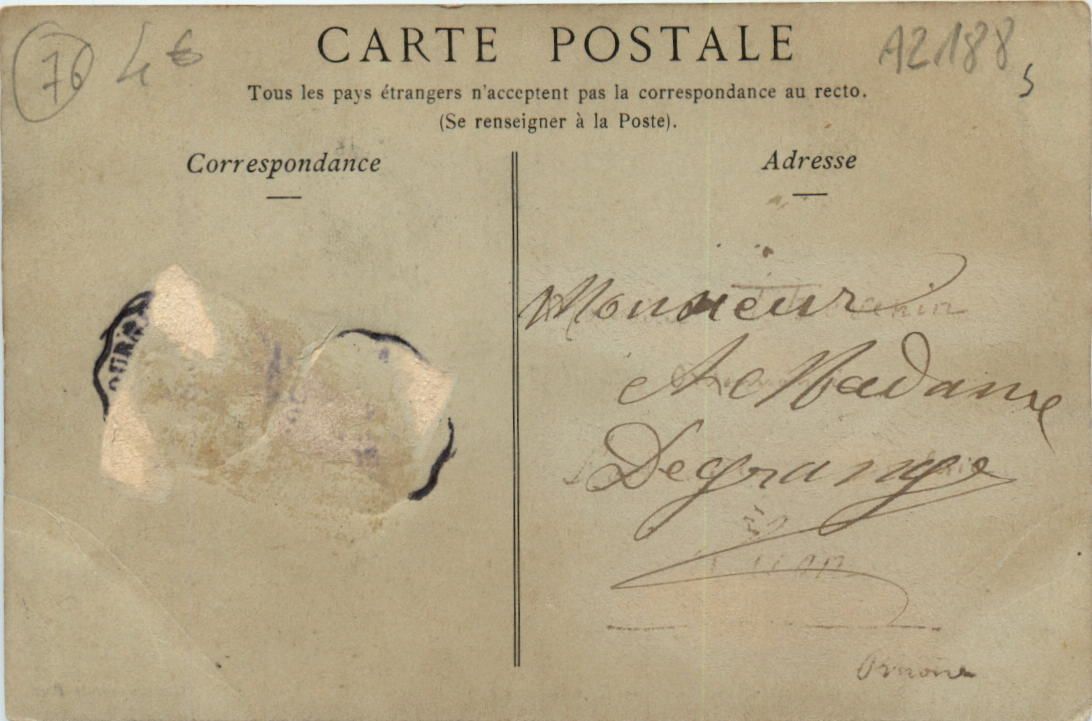 76
4€
A2188
CARTE POSTALE
Tous les pays étrangers n'acceptent pas la correspondance au recto.
(Se renseigner à la Poste).
Correspondance
Adresse
Monsieur
et Madame
Degrange